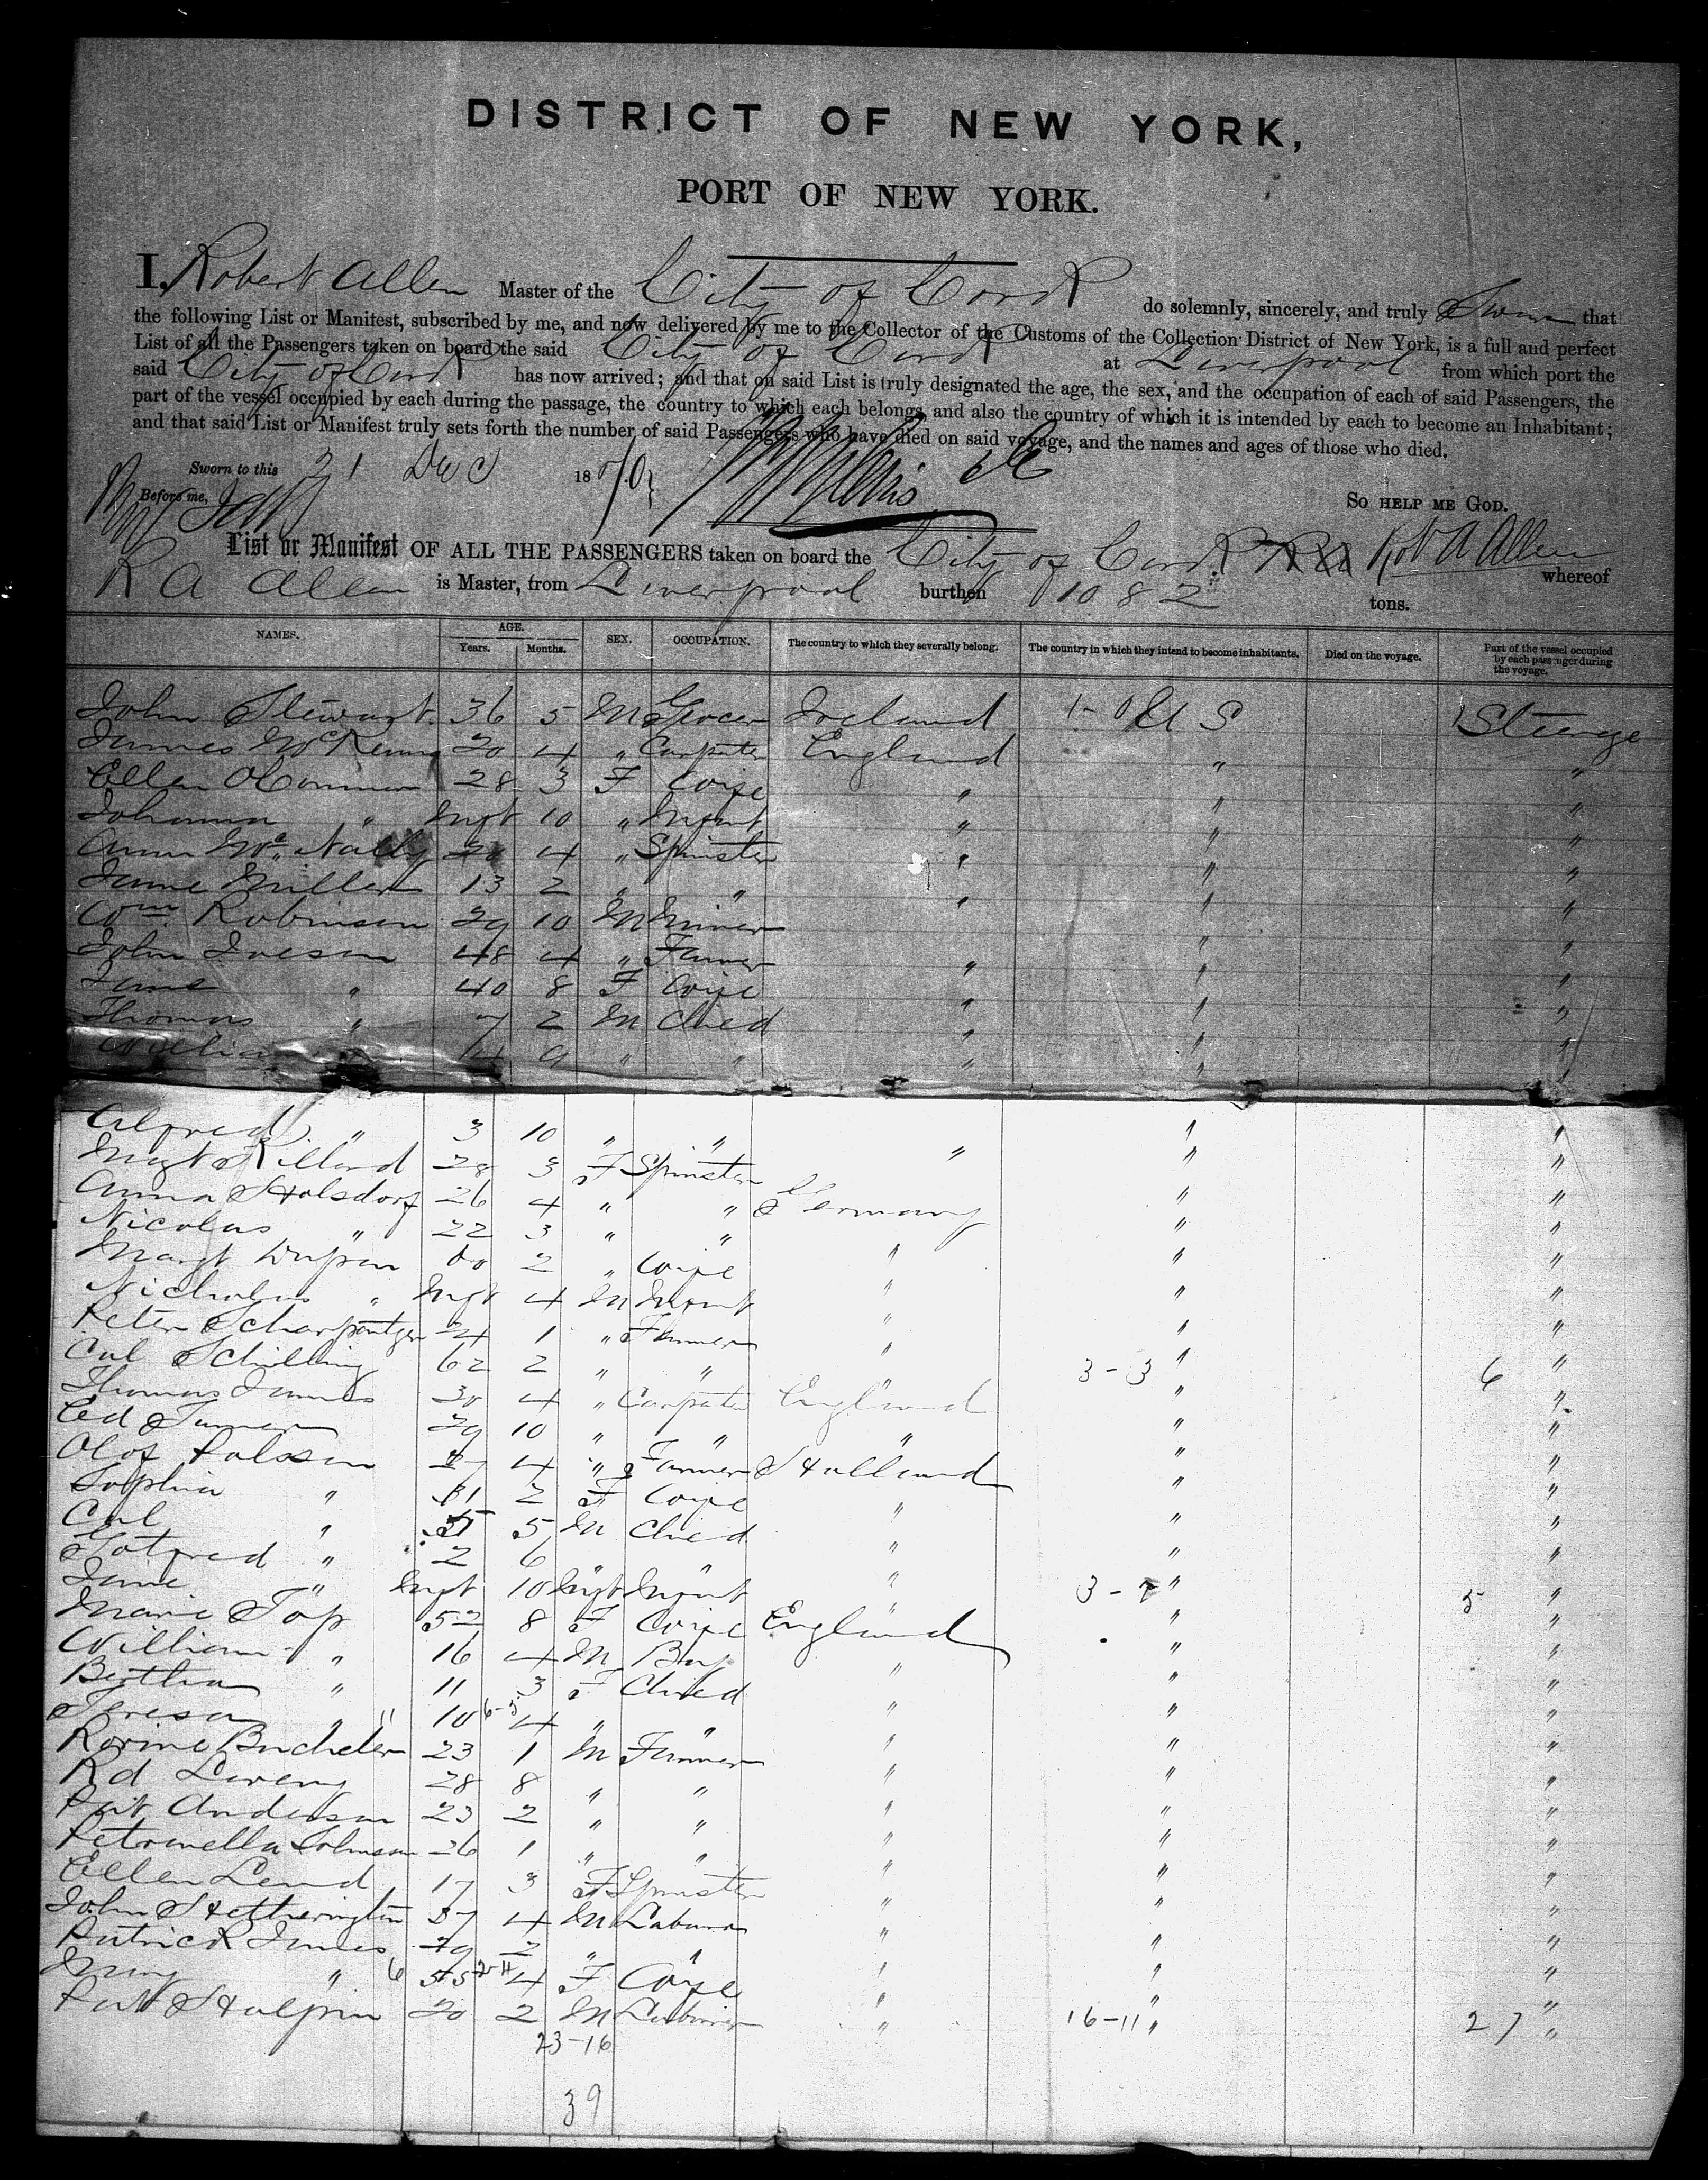 DISTRICT OF NEW YORK,
PORT OF NEW YORK.
I, Robert Allen Master of the City of Cork do solemnly, sincerely, and truly Swear that
the following List or Manifest, subscribed by me, and now delivered by me to the Collector of the Customs of the Collection District of New York, is a full and perfect
List of all the Passengers taken on board the said City of Cork at Liverpool from which port the
said City of Cork has now arrived; and that on said List is truly designated the age, the sex, and the occupation of each of said Passengers, the
part of the vessel occupied by each during the passage, the country to which each belongs, and also the country of which it is intended by each to become an Inhabitant;
and that said List or Manifest truly sets forth the number of said Passengers who have died on said voyage, and the names and ages of those who died.
Sworn to this 21 Dec 1870
Before me,
SO HELP ME GOD.
List or Manifest OF ALL THE PASSENGERS taken on board the City of Cork Robt A Allen whereof
R A Allen is Master, from Liverpool burthen 1082 tons.
NAMES. AGE. Years. Months. SEX. OCCUPATION. The country to which they severally belong. The country in which they intend to become inhabitants. Died on the voyage. Part of the vessel occupied by each passenger during the voyage.
John Stewart 36 5 M Grocer Ireland 1-0 U S 1 Steerage
James McKenna 20 4 " Carpenter England " "
Ellen OConnor 28 3 F Wife " " "
Johanna " Inft 10 " Infant " " "
Ann McNally 20 4 " Spinster " " "
Jane Miller 13 2 " " " " "
Wm Robinson 29 10 M Miner " "
John Iveson 48 4 " Farmer " " "
Jane " 40 8 F Wife " " "
Thomas " 7 2 M Child " " "
William " 14 9 " " " " "
Alfred " 3 10 " " " " "
Magt Killard 28 3 F Spinster " "
Anna Holsdorf 26 4 " " Germany " "
Nicolas " 22 3 " " " "
Margt 2 " Wife " " "
Nicholas " Inft 4 M Infant " " "
Peter Scharpantgen 24 1 " Farmer " " "
Carl Schilling 62 2 " " " 3-3 " 6 "
Thomas James 30 4 " Carpenter England " "
Ed Turner 29 10 " " " " "
Olof Palsson 4 " Farmer Holland " "
Sophia " 31 2 F Wife " " "
Carl " 5 M Child " " "
Gotfred " 2 6 " " " " "
Jane " Inft 10 Infant " 3-2 " 5 "
Marie Top 52 8 F Wife England " "
William " 16 4 M Boy " " "
Bertha " 11 3 F Child " " "
Teresa " 10 4 " " " " "
Rorine Bucheler 23 1 M Farmer " " "
Rd Liveny 28 8 " " " " "
Pat Anderson 23 2 " " " " "
Petronella Johnson 26 1 " " " " "
Ellen Lend 17 3 F Spinster " " "
John Hetherington 37 4 M Labourer " " "
Patrick James 29 2 " " " " "
Mary " 4 F Wife " " "
Pat Halpin 20 2 M Labourer " 16-11 " 27 "
23-16
39